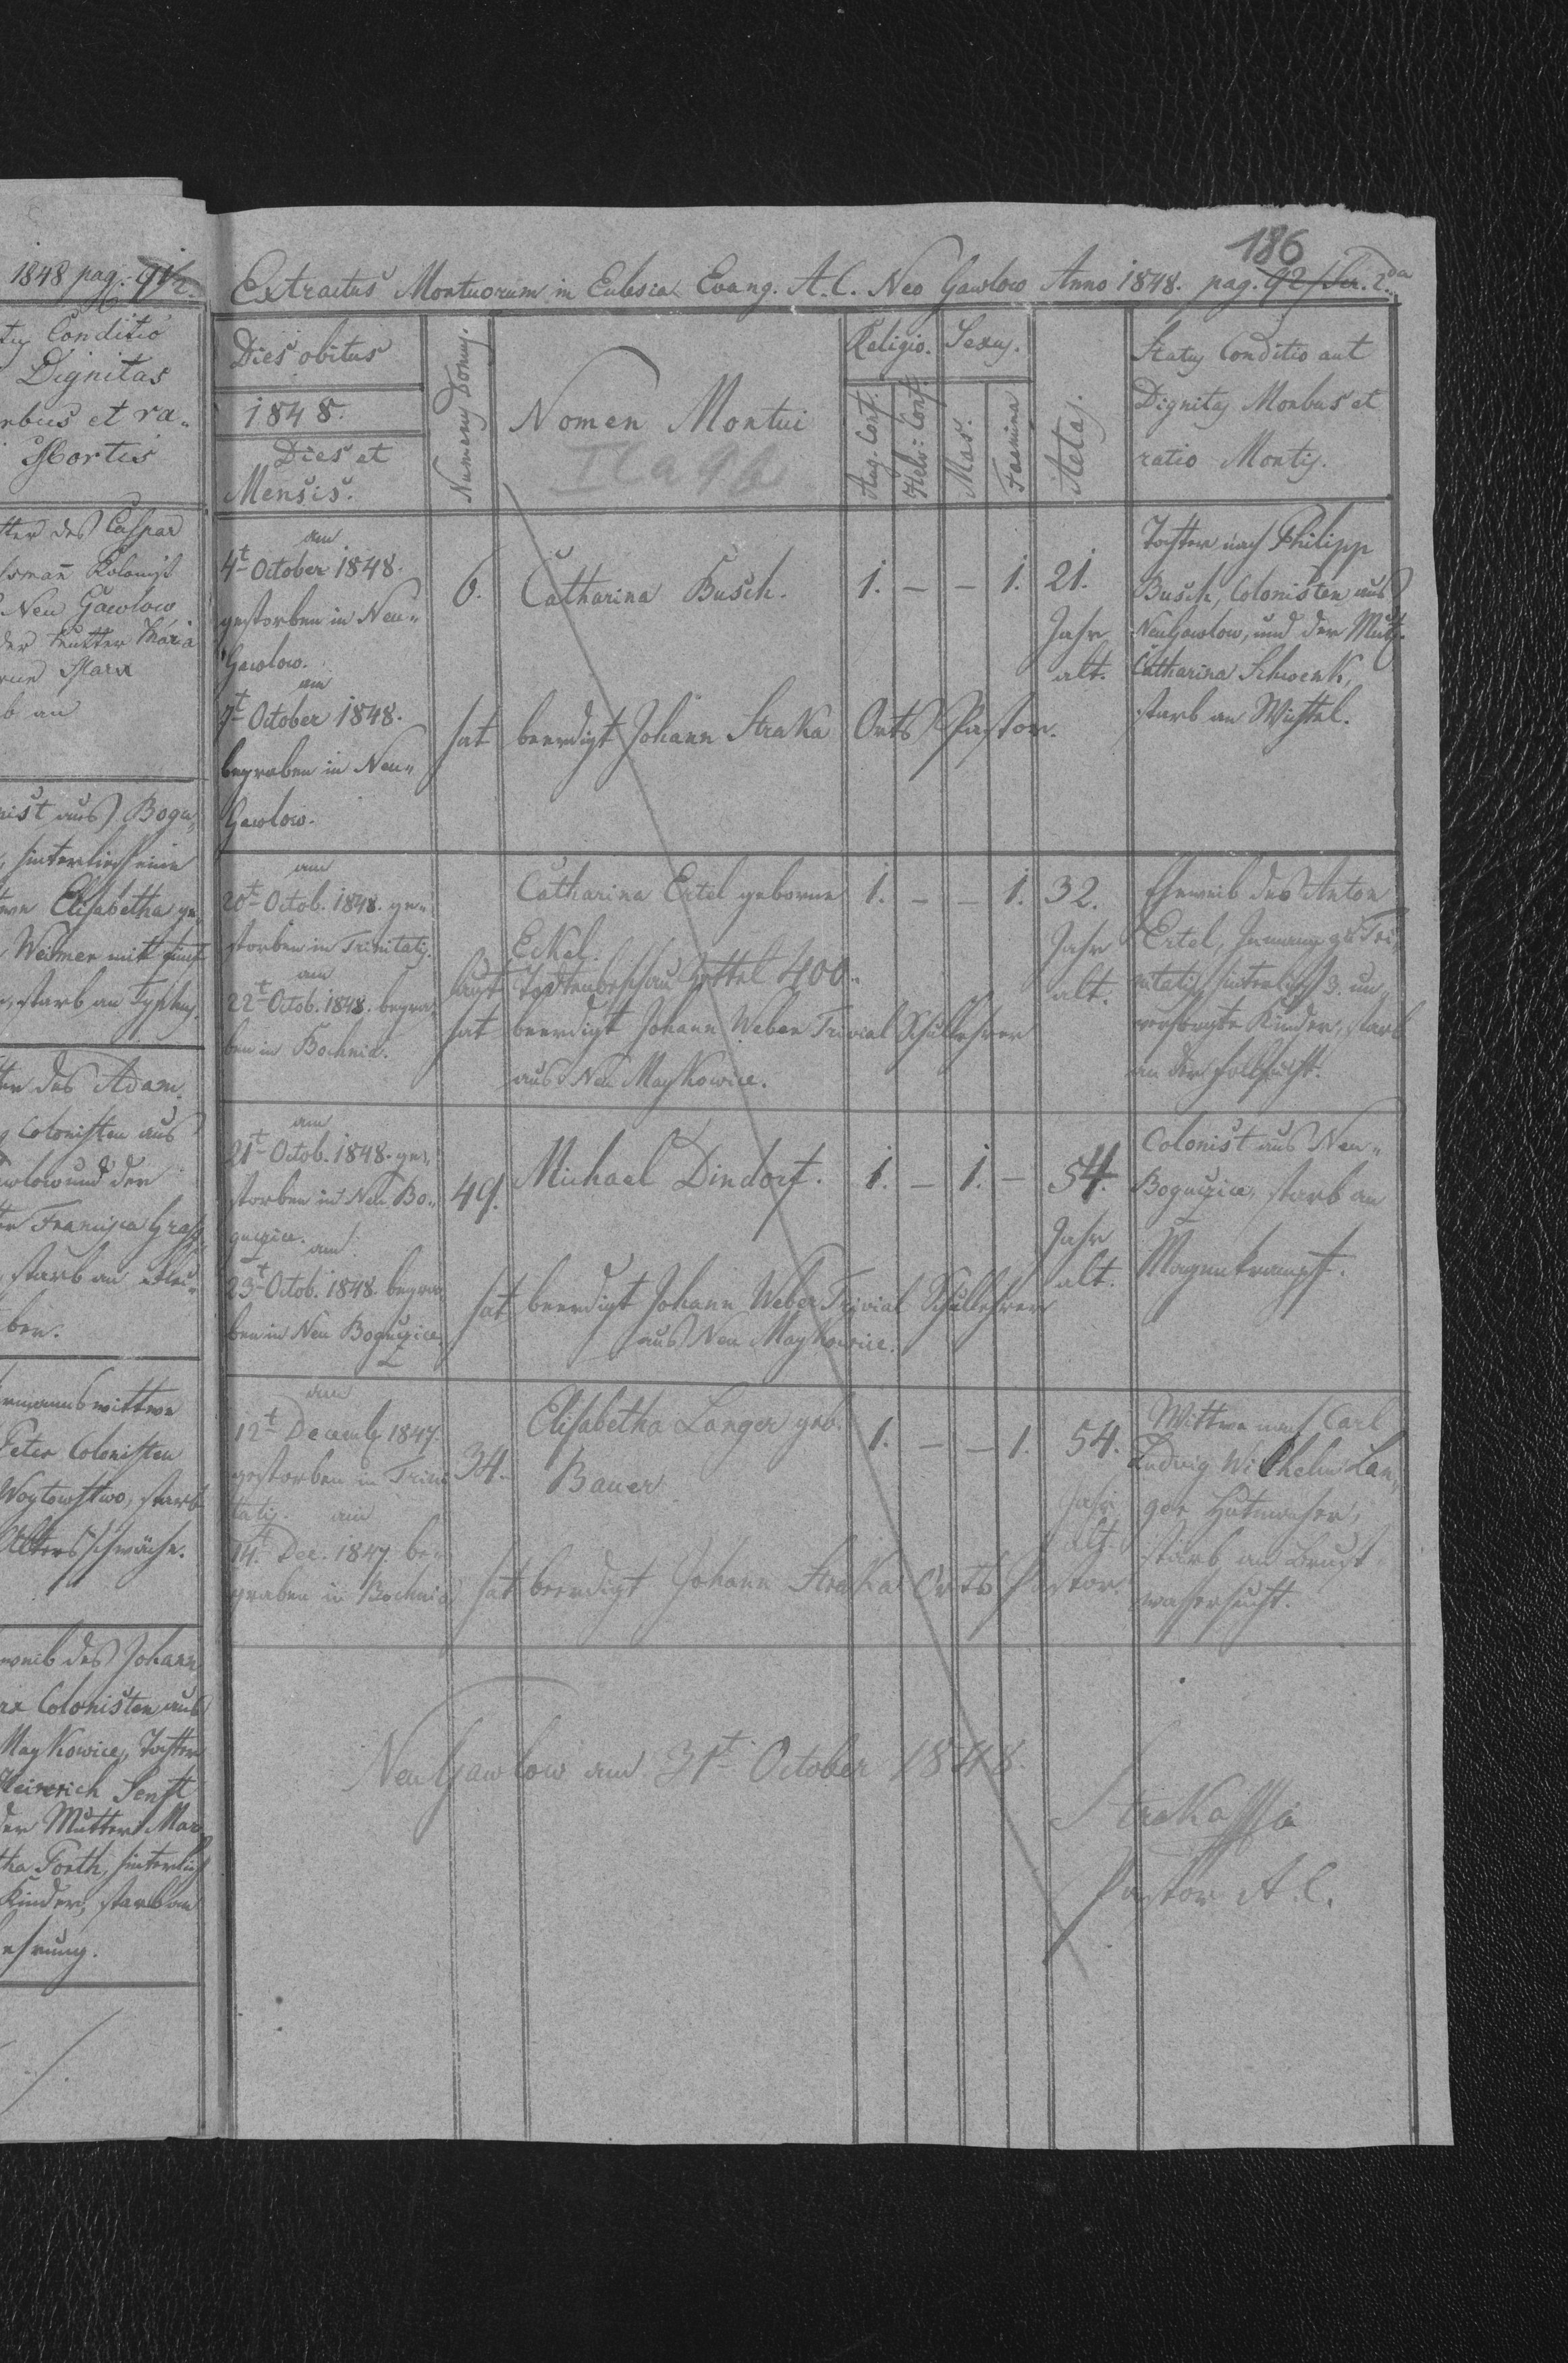 1848 pag. 91/2.
tus Conditio
Dignitas
orbus et ra-
Mortis
tter des Caspar
smañ Kolonist
Neu Gawlow
der Mutter Maria
Marx
b an
nist aus Bogu-
hinterließ eine
twe Elisabetha ge-
Weimer mit fünf
starb an Typhus.
ter des Adam
Colonisten aus
wlow und der
Francisca Graß
starb an
ben.
mannswittwe
Peter Colonisten
Woytowstwo, starb
Altersschwäche.
weib des Johann
rx Colonisten aus
Maykowice, Tochter
Heinrich Senft
der Mutter Mar
tha Forth, hinterließ
Kinder, starb an
ehrung.
186
Extractus Mortuorum in Eclesia Evang. A.C. Neo Gawlow Anno 1848. pag. 92/Ser. 2da
Dies obitus
1848.
Dies et
Mensis.
Numerus Domus.
Nomen Mortui
Religio.
Aug. Conf.
Helv: Conf.
Sexus.
Mas.
Faemina
Aetas.
Status Conditio aut
Dignitas Morbus et
ratio Mortis.
am
4t October 1848.
gestorben in Neu-
Gawlow.
am
7t October 1848.
begraben in Neu-
Gawlow.
6.
Catharina Busch.
1. — — 1. 21.
Jahr
alt.
hat beerdigt Johann Straka Orts Pastor.
Tochter nach Philipp
Busch, Colonisten aus
NeuGawlow, und der Mutt.
Catharina Schwenk,
starb an
am
20t Octob. 1848. ge-
storben in Trinitatis.
am
22t Octob. 1848. begra-
ben in Bochnia.
Catharina Ertel geborne
Eckel.
laut Todtenbeschau Zettel 400.
hat beerdigt Johann Weber Trivial Schullehrer
aus Neu Maykowice.
1. — — 1. 32.
Jahr
alt.
Eheweib des Anton
Ertel, Inmann zu Tri-
nitatis hinterließ 3. un-
versorgte Kinder, starb
an der
am
21t Octob. 1848. ge-
storben in Neu Bo-
gucice.
am
23t Octob. 1848. begra-
ben in Neu Bogucice
49.
Michael Dindorf.
1. — 1. — 54.
Jahr
alt.
hat beerdigt Johann Weber Trivial Schullehrer
aus Neu Maykowice.
Colonist aus Neu-
Bogucice, starb an
Magenkrampf.
am
12t Decemb 1847.
gestorben in Trini-
tatis. am
14t Dec. 1847 be-
graben in Bochnia
34.
Elisabetha Langer geb.
Bauer
1. — — 1. 54.
Jahr
alt.
hat beerdigt Johann Straka Orts Pastor.
Wittwe nach Carl
Ludwig Wilhelm Lan-
ger Hutmacher,
starb an Brust-
wassersucht.
NeuGawlow am 31t October 1848.
Straka
Pastor A.C.